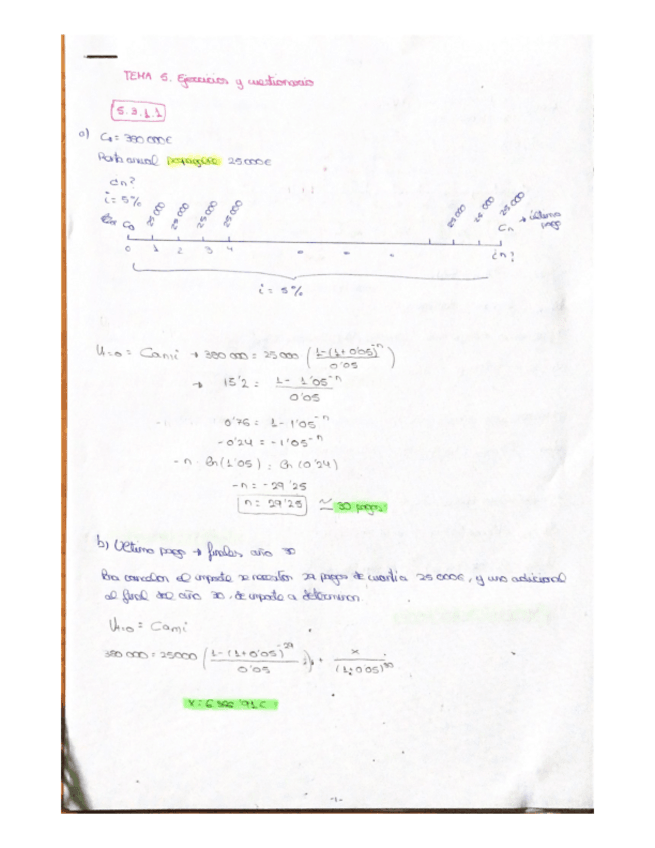 TEMA 5. Ejercicios y cuestionario
5.3.1.1
a) C₀ = 380 000€
Pasta anual pospagable 25000€
¿n?
i = 5%
25 000 25 000 25 000 25 000 25 000 25 000 25 000
C₀ Cn → último pago
0 1 2 3 4 ¿n?
i = 5%
V₀ = C an¬i → 380 000 = 25 000 ( 1-(1+0'05)^-n / 0'05 )
→ 15'2 = 1 - 1'05^-n / 0'05
0'76 = 1 - 1'05^-n
-0'24 = -1'05^-n
-n · ln(1'05) = ln(0'24)
-n = -29'25
n = 29'25 ≃ 30 pagos
b) Último pago → finales año 30
Para cancelar el importe se necesitan 29 pagos de cuantía 25 000€, y uno adicional
al final del año 30, de importe a determinar.
380 000 = 25000 ( 1-(1+0'05)^-29 / 0'05 ) + x / (1+0'05)^30
-1-